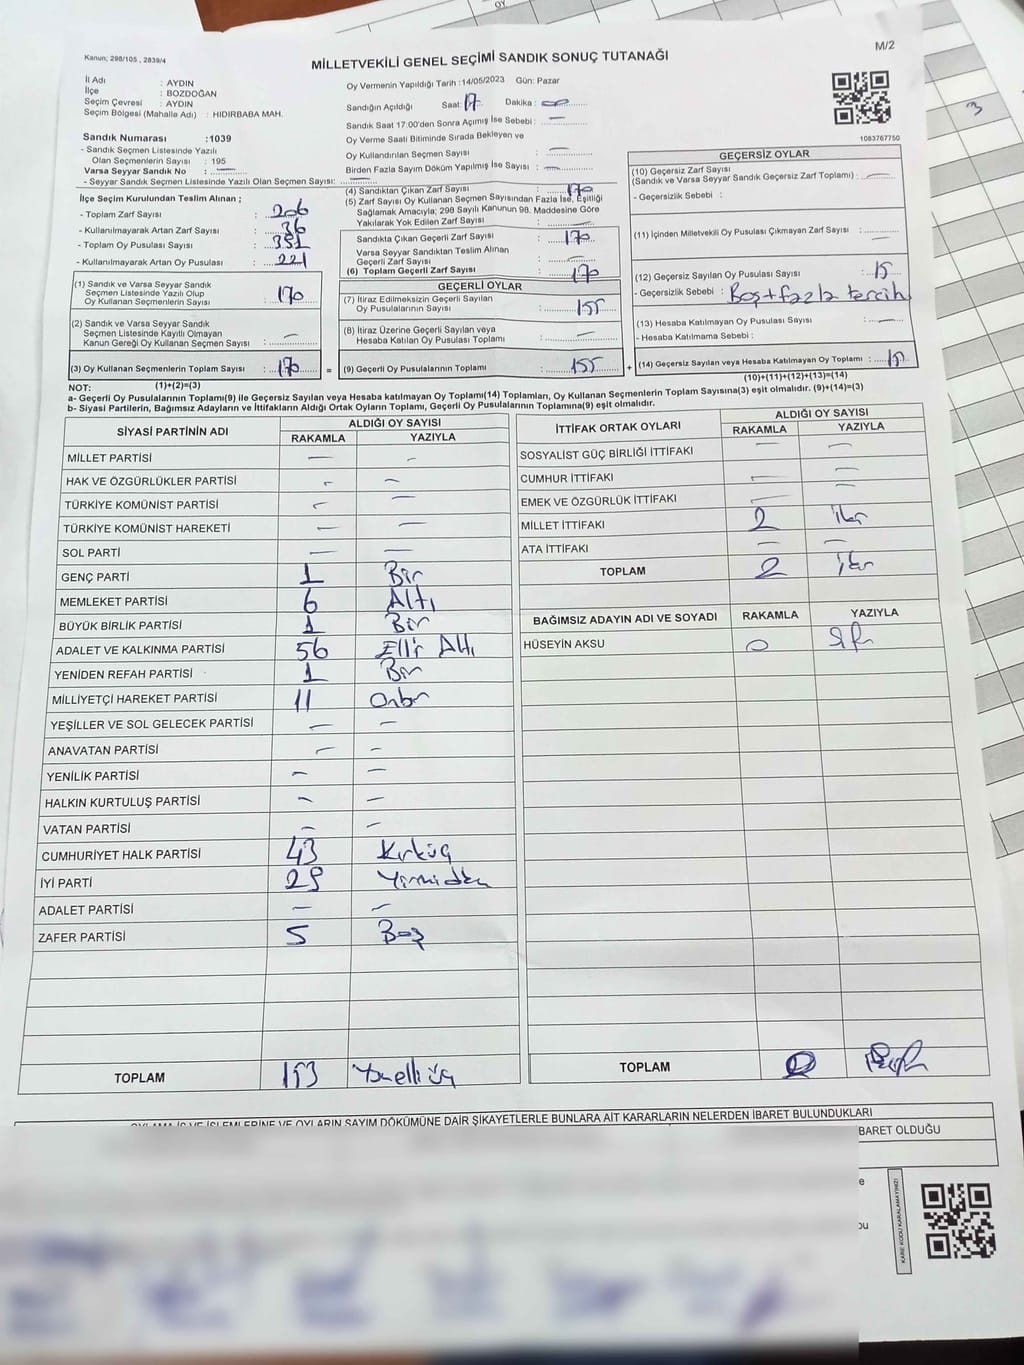 OY
M/2
Kanun; 298/105 , 2839/4
MİLLETVEKİLİ GENEL SEÇİMİ SANDIK SONUÇ TUTANAĞI
İl Adı : AYDIN
İlçe : BOZDOĞAN
Seçim Çevresi : AYDIN
Seçim Bölgesi (Mahalle Adı) : HIDIRBABA MAH.
Oy Vermenin Yapıldığı Tarih :14/05/2023 Gün: Pazar
Sandığın Açıldığı Saat: 17 Dakika :
Sandık Saat 17:00'den Sonra Açımış İse Sebebi : —
Oy Verme Saati Bitiminde Sırada Bekleyen ve
Oy Kullandırılan Seçmen Sayısı —
Birden Fazla Sayım Döküm Yapılmış İse Sayısı : —
1083767750
3
Sandık Numarası :1039
- Sandık Seçmen Listesinde Yazılı
Olan Seçmenlerin Sayısı : 195
Varsa Seyyar Sandık No : —
- Seyyar Sandık Seçmen Listesinde Yazılı Olan Seçmen Sayısı: —
İlçe Seçim Kurulundan Teslim Alınan ;
- Toplam Zarf Sayısı : 206
- Kullanılmayarak Artan Zarf Sayısı : 36
- Toplam Oy Pusulası Sayısı : 391
- Kullanılmayarak Artan Oy Pusulası : 221
(1) Sandık ve Varsa Seyyar Sandık
Seçmen Listesinde Yazılı Olup
Oy Kullanan Seçmenlerin Sayısı : 170
(2) Sandık ve Varsa Seyyar Sandık
Seçmen Listesinde Kayıtlı Olmayan
Kanun Gereği Oy Kullanan Seçmen Sayısı : —
(3) Oy Kullanan Seçmenlerin Toplam Sayısı : 170 =
(4) Sandıktan Çıkan Zarf Sayısı : 170
(5) Zarf Sayısı Oy Kullanan Seçmen Sayısından Fazla İse, Eşitliği
Sağlamak Amacıyla; 298 Sayılı Kanunun 98. Maddesine Göre
Yakılarak Yok Edilen Zarf Sayısı : —
Sandıkta Çıkan Geçerli Zarf Sayısı : 170
Varsa Seyyar Sandıktan Teslim Alınan
Geçerli Zarf Sayısı : —
(6) Toplam Geçerli Zarf Sayısı : 170
GEÇERLİ OYLAR
(7) İtiraz Edilmeksizin Geçerli Sayılan
Oy Pusulalarının Sayısı : 155
(8) İtiraz Üzerine Geçerli Sayılan veya
Hesaba Katılan Oy Pusulası Toplamı : —
(9) Geçerli Oy Pusulalarının Toplamı : 155 +
GEÇERSİZ OYLAR
(10) Geçersiz Zarf Sayısı
(Sandık ve Varsa Seyyar Sandık Geçersiz Zarf Toplamı) : —
- Geçersizlik Sebebi :
(11) İçinden Milletvekili Oy Pusulası Çıkmayan Zarf Sayısı : —
(12) Geçersiz Sayılan Oy Pusulası Sayısı : 15
- Geçersizlik Sebebi : Boş+fazla tercih
(13) Hesaba Katılmayan Oy Pusulası Sayısı : —
- Hesaba Katılmama Sebebi :
(14) Geçersiz Sayılan veya Hesaba Katılmayan Oy Toplamı : 15
(10)+(11)+(12)+(13)=(14)
NOT: (1)+(2)=(3)
a- Geçerli Oy Pusulalarının Toplamı(9) ile Geçersiz Sayılan veya Hesaba katılmayan Oy Toplamı(14) Toplamları, Oy Kullanan Seçmenlerin Toplam Sayısına(3) eşit olmalıdır. (9)+(14)=(3)
b- Siyasi Partilerin, Bağımsız Adayların ve İttifakların Aldığı Ortak Oyların Toplamı, Geçerli Oy Pusulalarının Toplamına(9) eşit olmalıdır.
SİYASİ PARTİNİN ADI ALDIĞI OY SAYISI
RAKAMLA YAZIYLA
MİLLET PARTİSİ — —
HAK VE ÖZGÜRLÜKLER PARTİSİ — —
TÜRKİYE KOMÜNİST PARTİSİ — —
TÜRKİYE KOMÜNİST HAREKETİ — —
SOL PARTİ — —
GENÇ PARTİ 1 Bir
MEMLEKET PARTİSİ 6 Altı
BÜYÜK BİRLİK PARTİSİ 1 Bir
ADALET VE KALKINMA PARTİSİ 56 Elli Altı
YENİDEN REFAH PARTİSİ 1 Bir
MİLLİYETÇİ HAREKET PARTİSİ 11 Onbir
YEŞİLLER VE SOL GELECEK PARTİSİ — —
ANAVATAN PARTİSİ — —
YENİLİK PARTİSİ — —
HALKIN KURTULUŞ PARTİSİ — —
VATAN PARTİSİ — —
CUMHURİYET HALK PARTİSİ 43 Kırküç
İYİ PARTİ 29 Yirmidokuz
ADALET PARTİSİ — —
ZAFER PARTİSİ 5 Beş
TOPLAM 153 Yüzelliüç
İTTİFAK ORTAK OYLARI ALDIĞI OY SAYISI
RAKAMLA YAZIYLA
SOSYALİST GÜÇ BİRLİĞİ İTTİFAKI — —
CUMHUR İTTİFAKI — —
EMEK VE ÖZGÜRLÜK İTTİFAKI — —
MİLLET İTTİFAKI 2 iki
ATA İTTİFAKI — —
TOPLAM 2 iki
BAĞIMSIZ ADAYIN ADI VE SOYADI RAKAMLA YAZIYLA
HÜSEYİN AKSU 0 Sıfır
TOPLAM
OYLAMA İŞ VE İŞLEMLERİNE VE OYLARIN SAYIM DÖKÜMÜNE DAİR ŞİKAYETLERLE BUNLARA AİT KARARLARIN NELERDEN İBARET BULUNDUKLARI
BARET OLDUĞU
KARE KODU KARALAMAYINIZ!